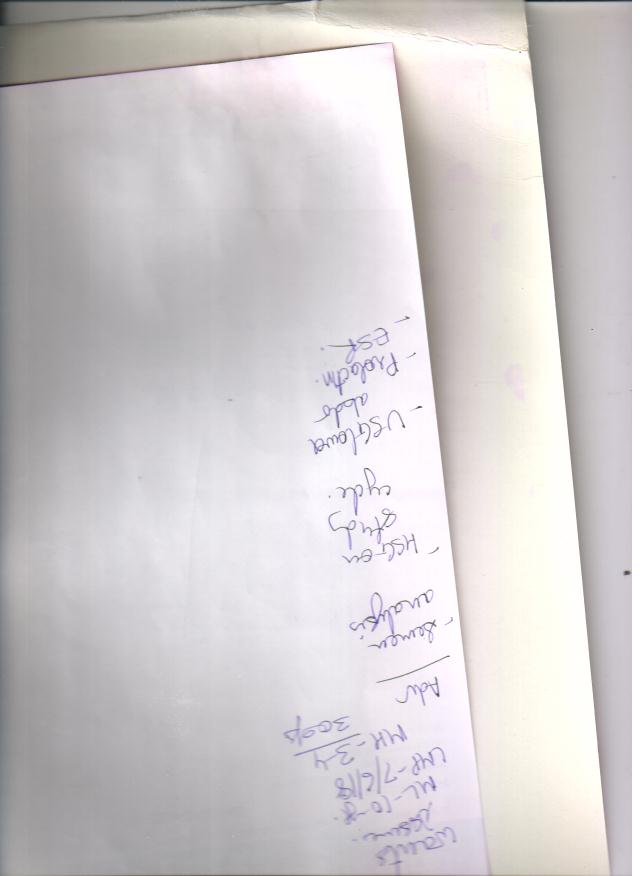 Wants
issue.
ML-10-8.
LMP-7/6/18
MH-3-4
Adv
- Semen
analysis
- HSG-on
cycle.
- USG lower
abdo
- Prolactin.
- ESR.
-